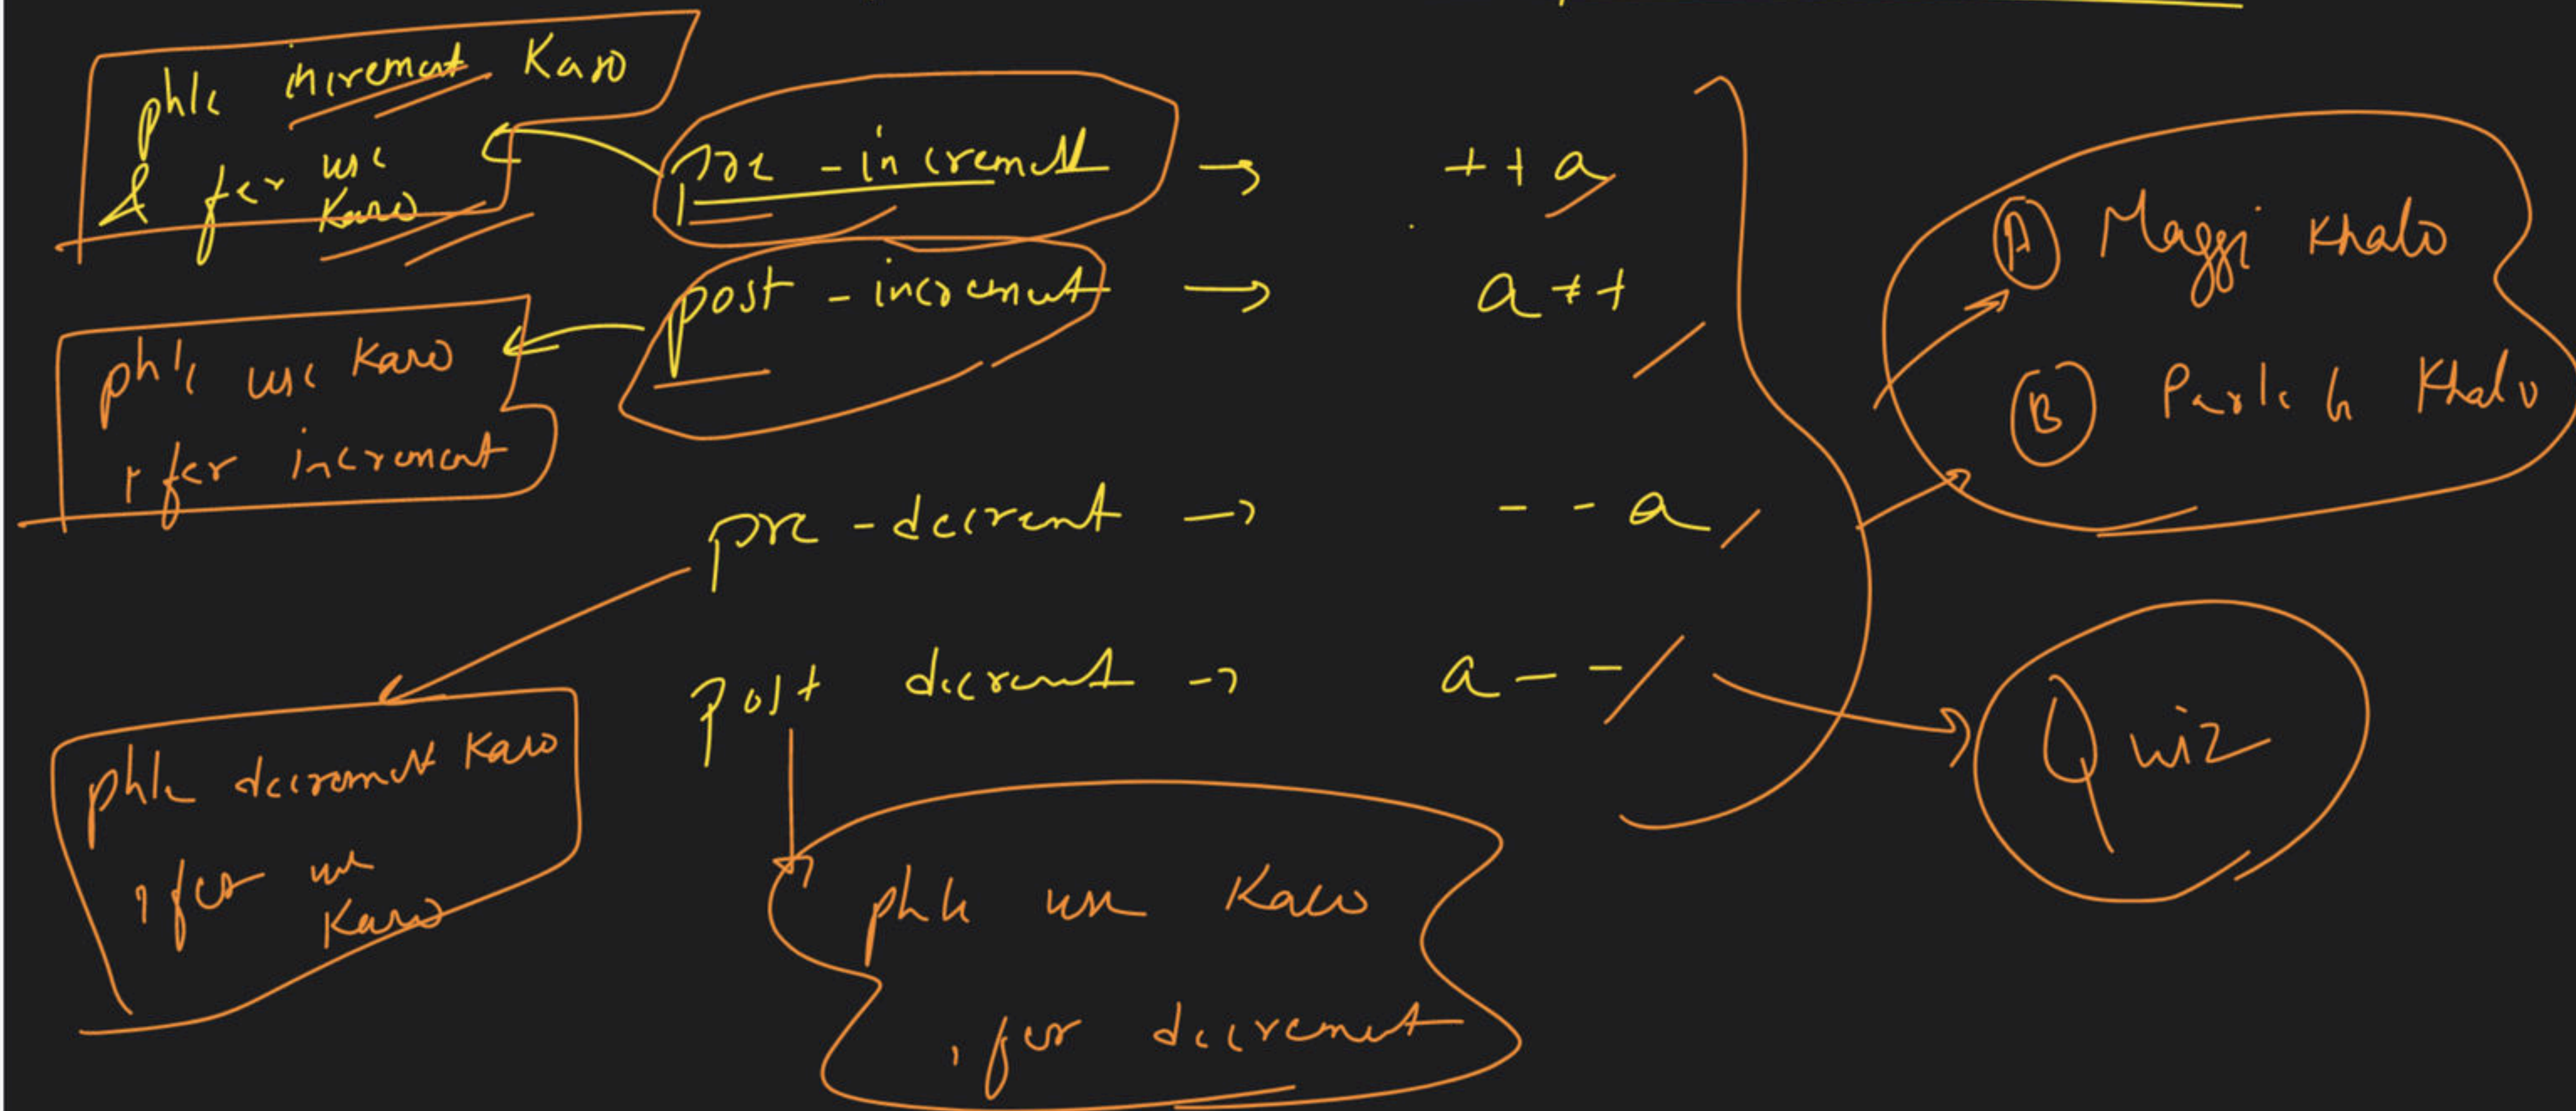 phle increment Karo
& fer use
Karo
pre - increment → ++a
post - increment → a++
phle use Karo
, fer increment
pre - decrement → --a
post decrement → a--
phle decrement Karo
, fer use
Karo
phle use Karo
, fer decrement
A Maggi Khalo
B Parle G Khalo
Quiz